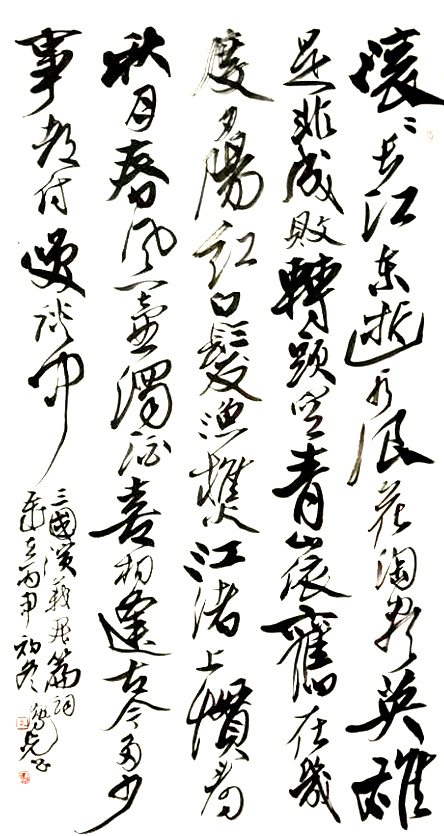 滚〻长江东逝水浪花淘尽英雄
是非成敗轉頭空青山依舊在幾
度夕陽紅白髮漁樵江渚上慣看
秋月春风一壺濁酒喜相逢古今多少
事都付笑談中
三國演義開篇詞
歲在丙申初冬